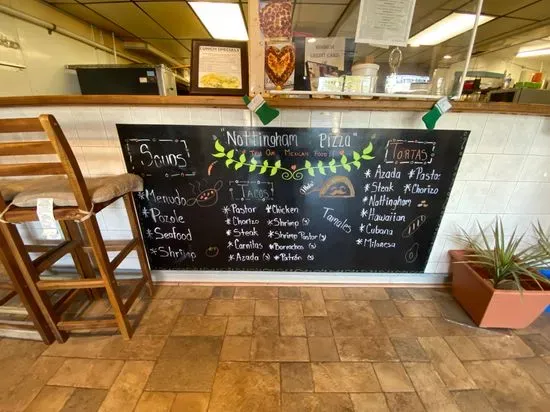 LUNCH SPECIALS
"Nottingham Pizza"
Try Our Mexican Food
Soups
*Menudo
*Pozole
*Seafood
*Shrimp
TACOS
*Pastor *Chicken
*Chorizo *Shrimp (3)
*Steak *Shrimp Pastor (3)
*Carnitas *Borrachos (3)
*Azada *Patrón (3)
Tamales
TORTAS
*Azada *Pastor
*Steak *Chorizo
*Nottingham
*Hawaiian
*Cubana
*Milanesa